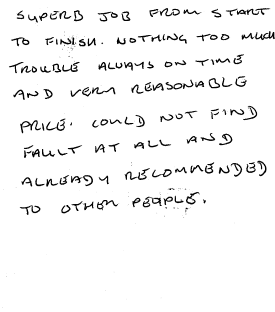 SUPERB JOB FROM START
TO FINISH. NOTHING TOO MUCH
TROUBLE ALWAYS ON TIME
AND VERY REASONABLE
PRICE. COULD NOT FIND
FAULT AT ALL AND
ALREADY RECOMMENDED
TO OTHER PEOPLE.